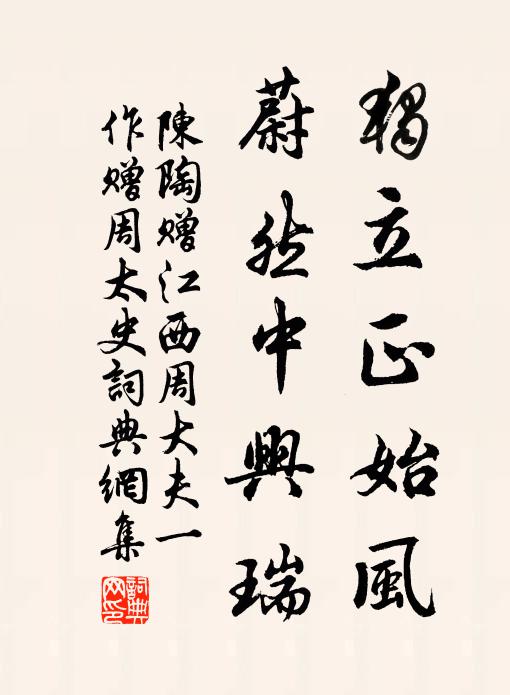 獨立正始風
蔚然中興瑞
陳陶贈江西周大夫一
作贈周太史詞典網集
詞典
网印